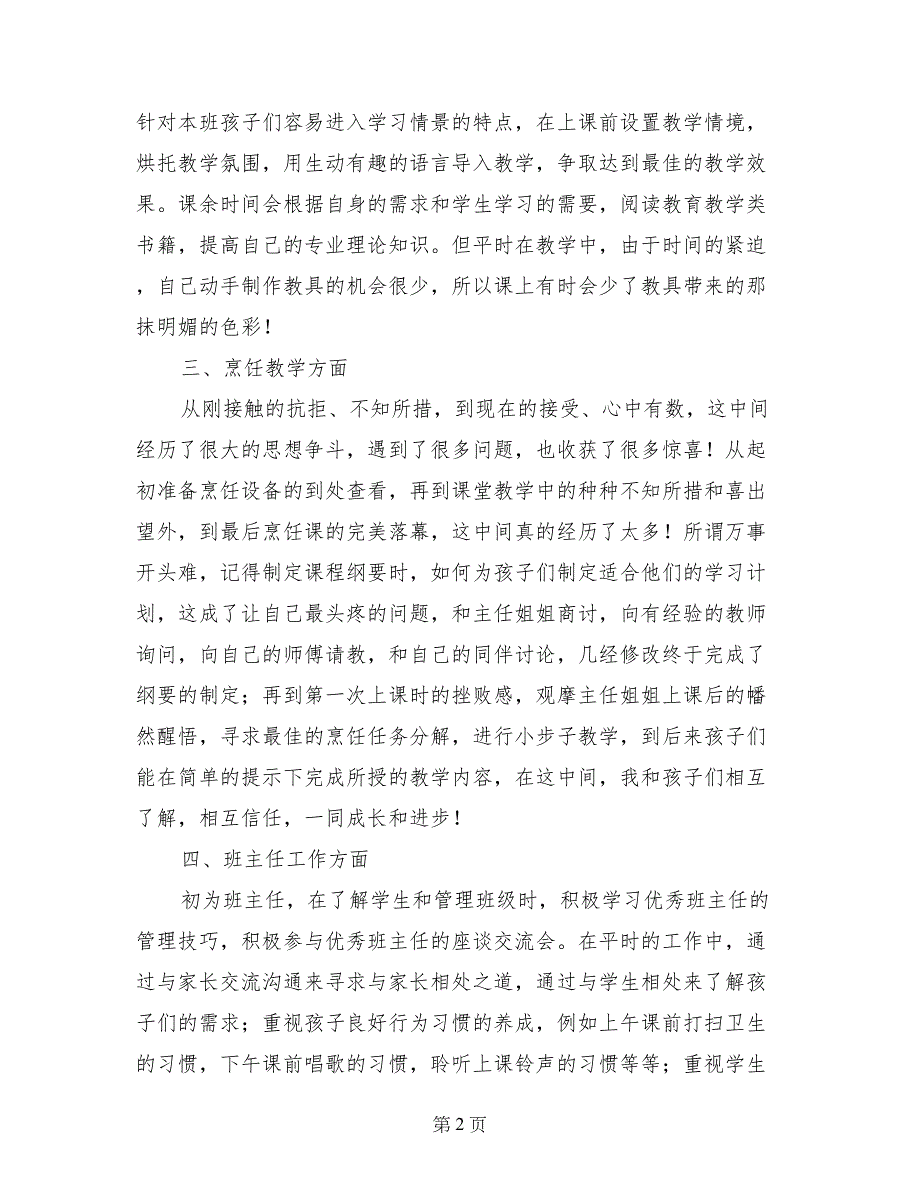 针对本班孩子们容易进入学习情景的特点，在上课前设置教学情境，
烘托教学氛围，用生动有趣的语言导入教学，争取达到最佳的教学效
果。课余时间会根据自身的需求和学生学习的需要，阅读教育教学类
书籍，提高自己的专业理论知识。但平时在教学中，由于时间的紧迫
，自己动手制作教具的机会很少，所以课上有时会少了教具带来的那
抹明媚的色彩！
三、烹饪教学方面
从刚接触的抗拒、不知所措，到现在的接受、心中有数，这中间
经历了很大的思想争斗，遇到了很多问题，也收获了很多惊喜！从起
初准备烹饪设备的到处查看，再到课堂教学中的种种不知所措和喜出
望外，到最后烹饪课的完美落幕，这中间真的经历了太多！所谓万事
开头难，记得制定课程纲要时，如何为孩子们制定适合他们的学习计
划，这成了让自己最头疼的问题，和主任姐姐商讨，向有经验的教师
询问，向自己的师傅请教，和自己的同伴讨论，几经修改终于完成了
纲要的制定；再到第一次上课时的挫败感，观摩主任姐姐上课后的幡
然醒悟，寻求最佳的烹饪任务分解，进行小步子教学，到后来孩子们
能在简单的提示下完成所授的教学内容，在这中间，我和孩子们相互
了解，相互信任，一同成长和进步！
四、班主任工作方面
初为班主任，在了解学生和管理班级时，积极学习优秀班主任的
管理技巧，积极参与优秀班主任的座谈交流会。在平时的工作中，通
过与家长交流沟通来寻求与家长相处之道，通过与学生相处来了解孩
子们的需求；重视孩子良好行为习惯的养成，例如上午课前打扫卫生
的习惯，下午课前唱歌的习惯，聆听上课铃声的习惯等等；重视学生
第 2 页